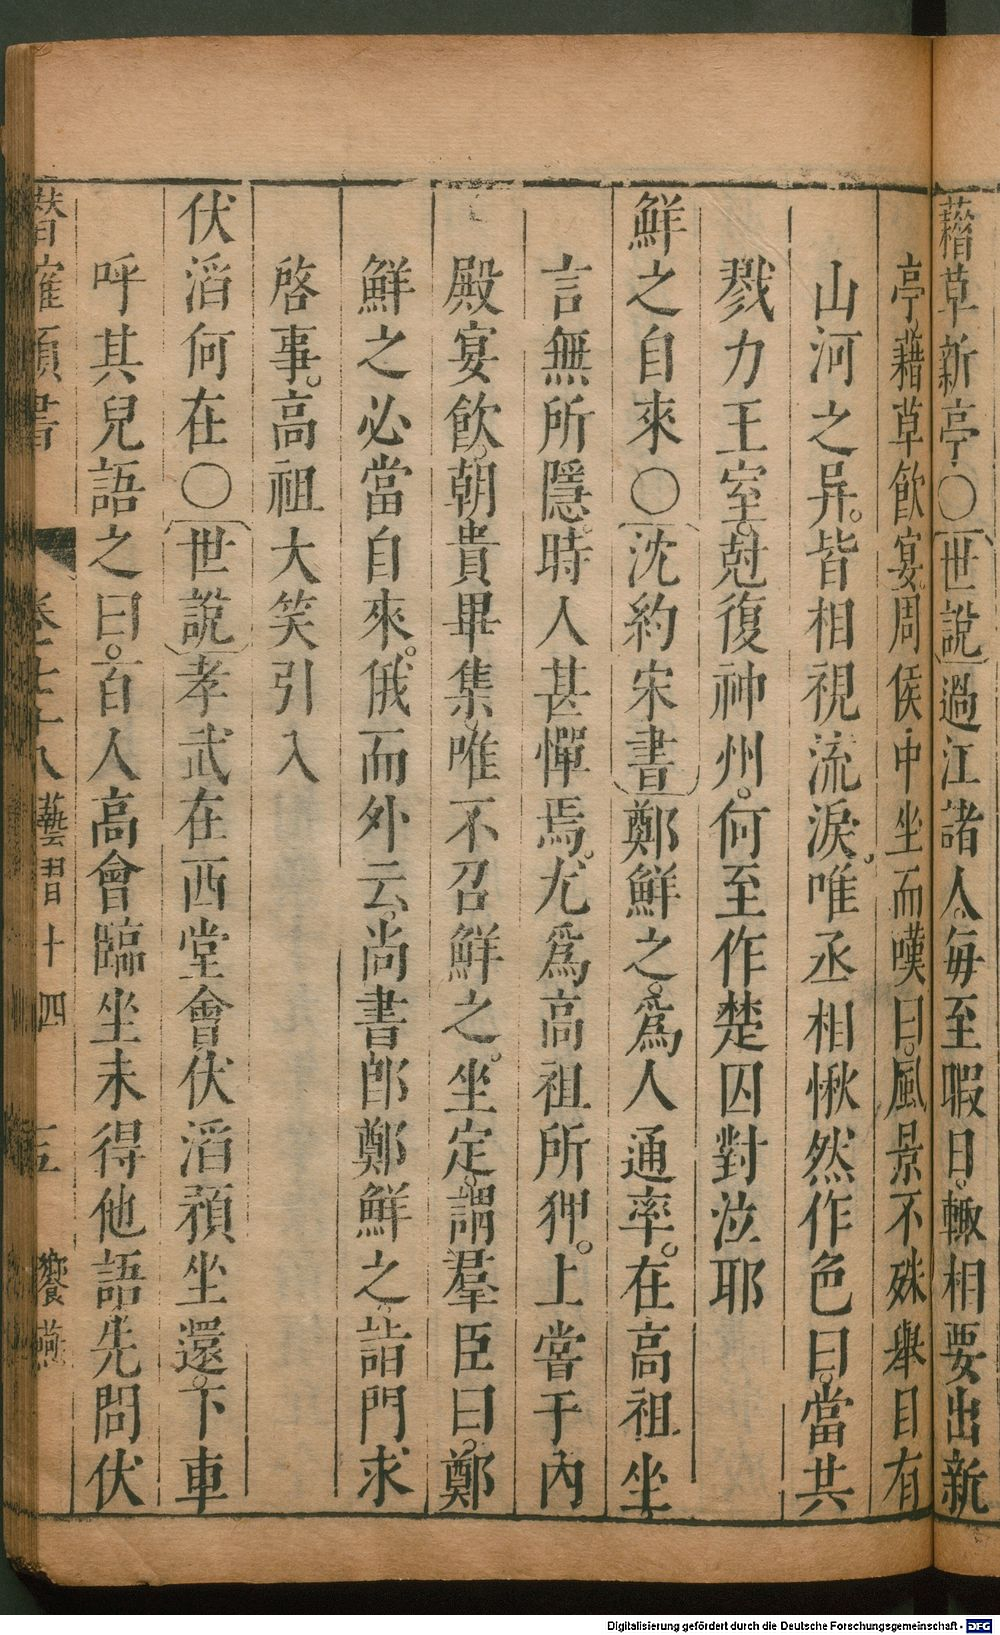 藉草新亭○世說過江諸人。每至暇日。輒相要出新
亭。藉草飲宴。周侯中坐而嘆曰。風景不殊舉目有
山河之异。皆相視流淚。唯丞相愀然作色曰。當共
戮力王室。尅復神州。何至作楚囚對泣耶
鮮之自來○沈約宋書鄭鮮之。爲人通率。在高祖坐
言無所隱。時人甚憚焉。尤爲高祖所狎。上嘗于內
殿宴飲。朝貴畢集。唯不召鮮之。坐定。謂羣臣曰。鄭
鮮之必當自來。俄而外云。尚書郎鄭鮮之。詣門求
啓事。高祖大笑引入
伏滔何在○世說孝武在西堂會伏滔預坐還。下車
呼其兒語之曰。百人高會臨坐未得他語先問伏
卷一七十八 藝習十四 五 饗燕
Digitalisierung gefördert durch die Deutsche Forschungsgemeinschaft - DFG